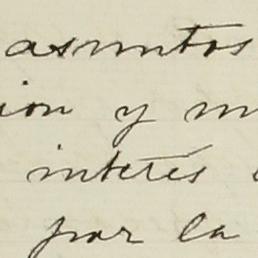 asuntos
ion y m
interés
por la